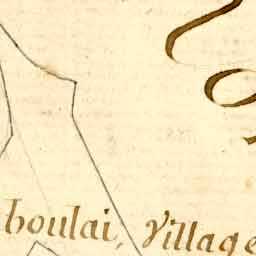 houlai, Village